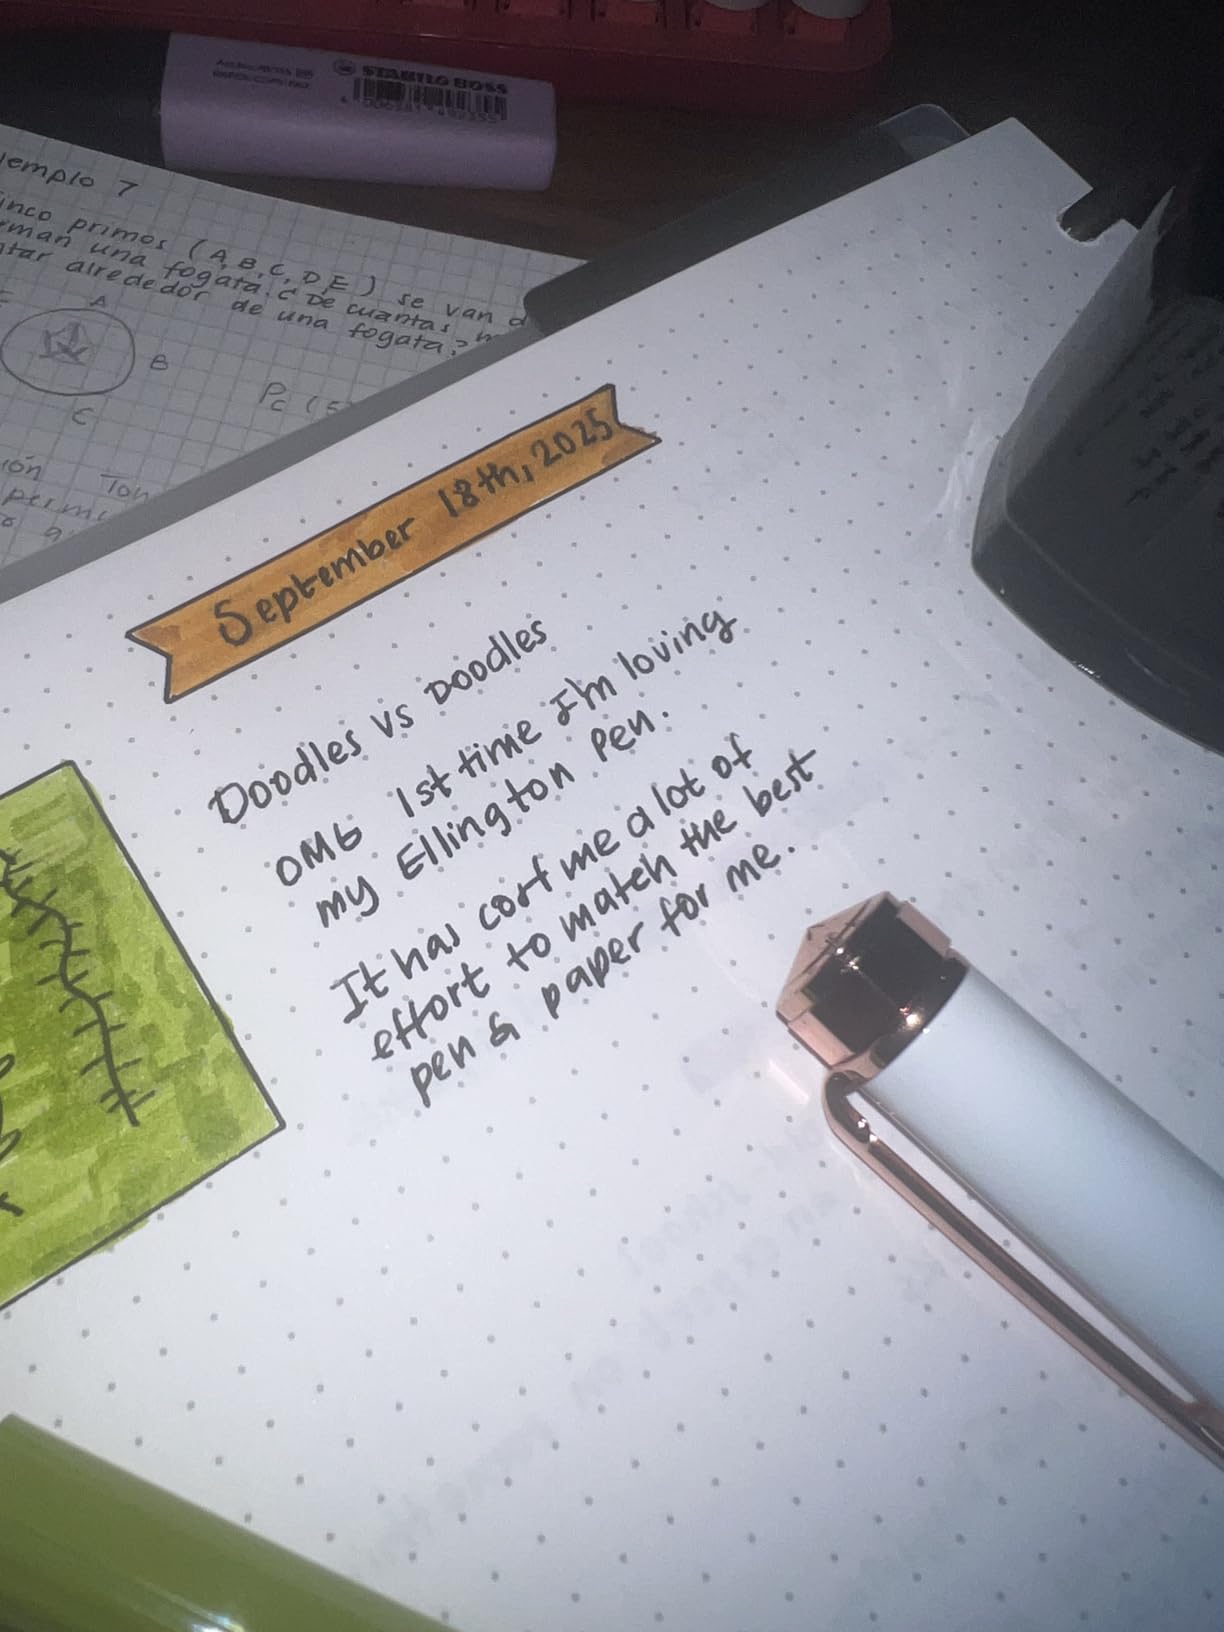 STABILO BOSS
emplo 7
inco primos (A, B, C, D, E) se van a
rman una fogata. ¿De cuantas
ntar alrededor de una fogata?
A
B
C
Pc (5
ión Ton
permu
September 18th, 2025
Doodles vs Doodles
OMG 1st time I'm loving
my Ellington Pen.
It has cost me a lot of
effort to match the best
pen & paper for me.